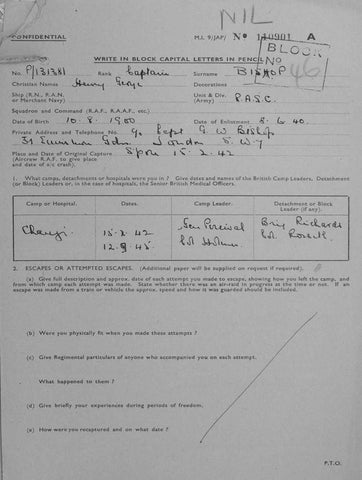 NIL
CONFIDENTIAL
M.I. 9/JAP/ No 110901 A
BLOCK
No
46
WRITE IN BLOCK CAPITAL LETTERS IN PENCIL
No. P/131381 Rank Captain Surname BISHOP
Christian Names Henry George Decorations
Ship (R.N., R.A.N. or Merchant Navy) Unit & Div. (Army) R.A.S.C.
Squadron and Command (R.A.F., R.A.A.F., etc.)
Date of Birth 10. 8. 1900 Date of Enlistment 8. 6. 40.
Private Address and Telephone No. c/o Capt G W Bishop
31 Gdns. London S.W.7
Place and Date of Original Capture S'pore 15. 2. 42
(Aircrew R.A.F. to give place
and date of a/c crash).
1. What camps, detachments or hospitals were you in? Give dates and names of the British Camp Leaders, Detachment
(or Block) Leaders or, in the case of hospitals, the Senior British Medical Officers.
Camp or Hospital. Dates. Camp Leader. Detachment or Block
Leader (if any).
Changi 15. 2. 42 Gen Percival Brig Richards
12. 9. 45. Col Holmes Col
2. ESCAPES OR ATTEMPTED ESCAPES. (Additional paper will be supplied on request if required).
(a) Give full description and approx. date of each attempt you made to escape, showing how you left the camp, and
from which camp each attempt was made. State whether there was an air-raid in progress at the time or not. If an
escape was made from a train or vehicle the approx. speed and how it was guarded should be included.
(b) Were you physically fit when you made these attempts?
(c) Give Regimental particulars of anyone who accompanied you on each attempt.
What happened to them?
(d) Give briefly your experiences during periods of freedom.
(e) How were you recaptured and on what date?
P.T.O.